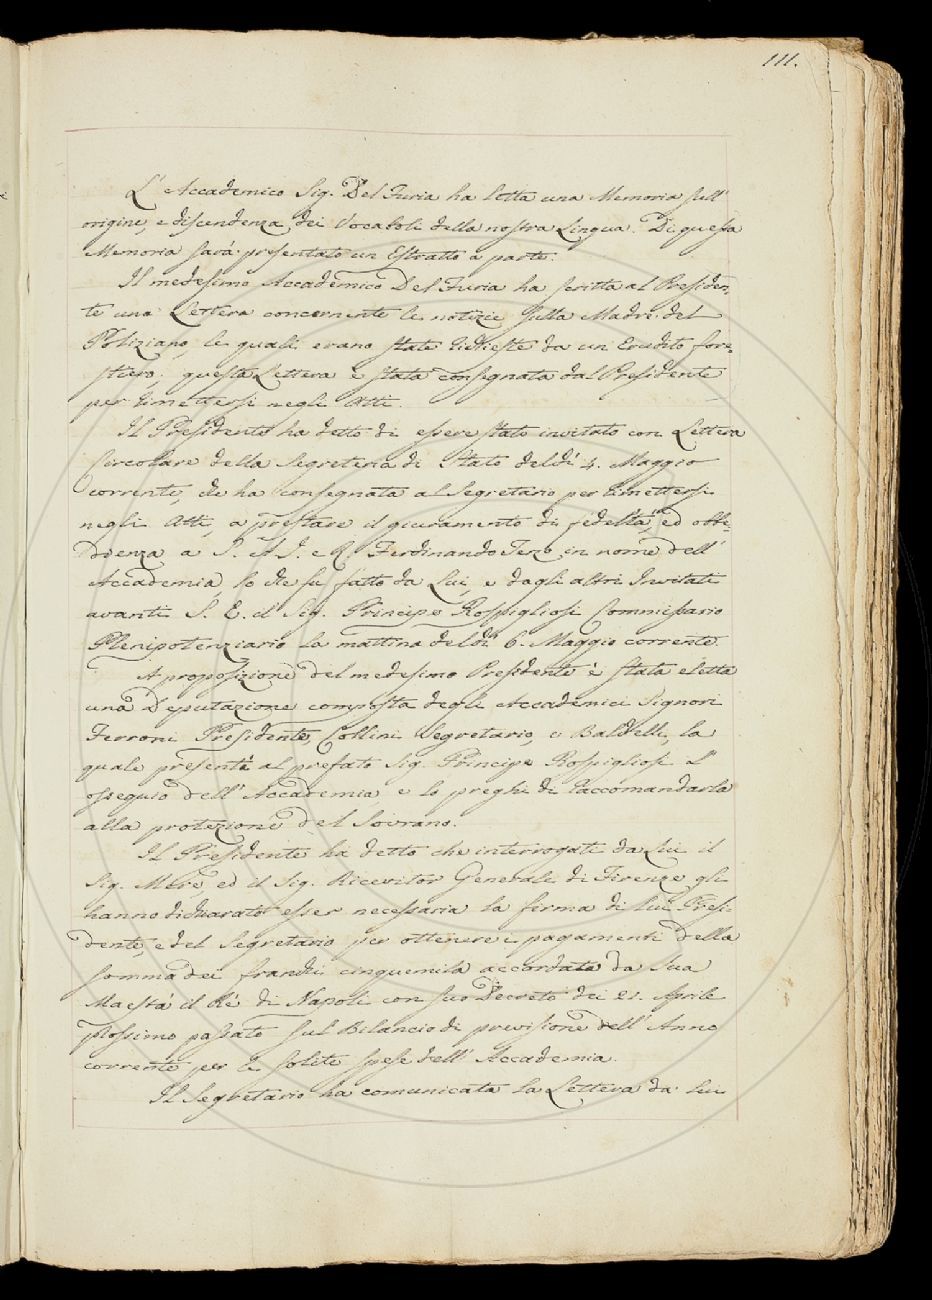 111.
L' Accademico Sig. Del Furia ha letta una Memoria sull'
origine, e discendenza dei Vocaboli della nostra Lingua. Di questa
Memoria sarà presentato un Estratto a parte.
Il medesimo Accademico Del Furia ha scritta al Presiden-
te una Lettera concernente le notizie sulla Madre del
Poliziano, le quali erano state richieste da un Erudito fore-
stiero; questa Lettera è stata consegnata dal Presidente
per rimettersi negli Atti.
Il Presidente ha detto di essere stato invitato con Lettera
Circolare della Segreteria di Stato del dì 4. Maggio
corrente, che ha consegnata al Segretario per rimettersi
negli Atti, a prestare il giuramento di fedeltà, ed obbe-
dienza a S. A. I. e R. Ferdinando Terzo in nome dell'
Accademia, lo che fu fatto da Lui, e dagli altri Invitati
avanti S. E. il Sig. Principe Rospigliosi Commissario
Plenipotenziario la mattina del dì 6. Maggio corrente.
A proposizione del medesimo Presidente è stata eletta
una Deputazione composta degli Accademici Signori
Ferroni Presidente, Collini Segretario, e Baldelli, la
quale presenti al prefato Sig. Principe Rospigliosi l'
ossequio dell' Accademia, e lo preghi di raccomandarla
alla protezione del Sovrano.
Il Presidente ha detto che interrogati da Lui il
Sig. Meré, ed il Sig. Ricevitor Generale di Firenze gli
hanno dichiarato esser necessaria la firma di Lui Presi-
dente, e del Segretario per ottenere i pagamenti della
somma dei franchi cinquemila accordata da Sua
Maestà il Rè di Napoli con suo Decreto dei 21. Aprile
prossimo passato sul Bilancio di previsione dell' Anno
corrente per le solite spese dell' Accademia.
Il Segretario ha comunicata la Lettera da lui